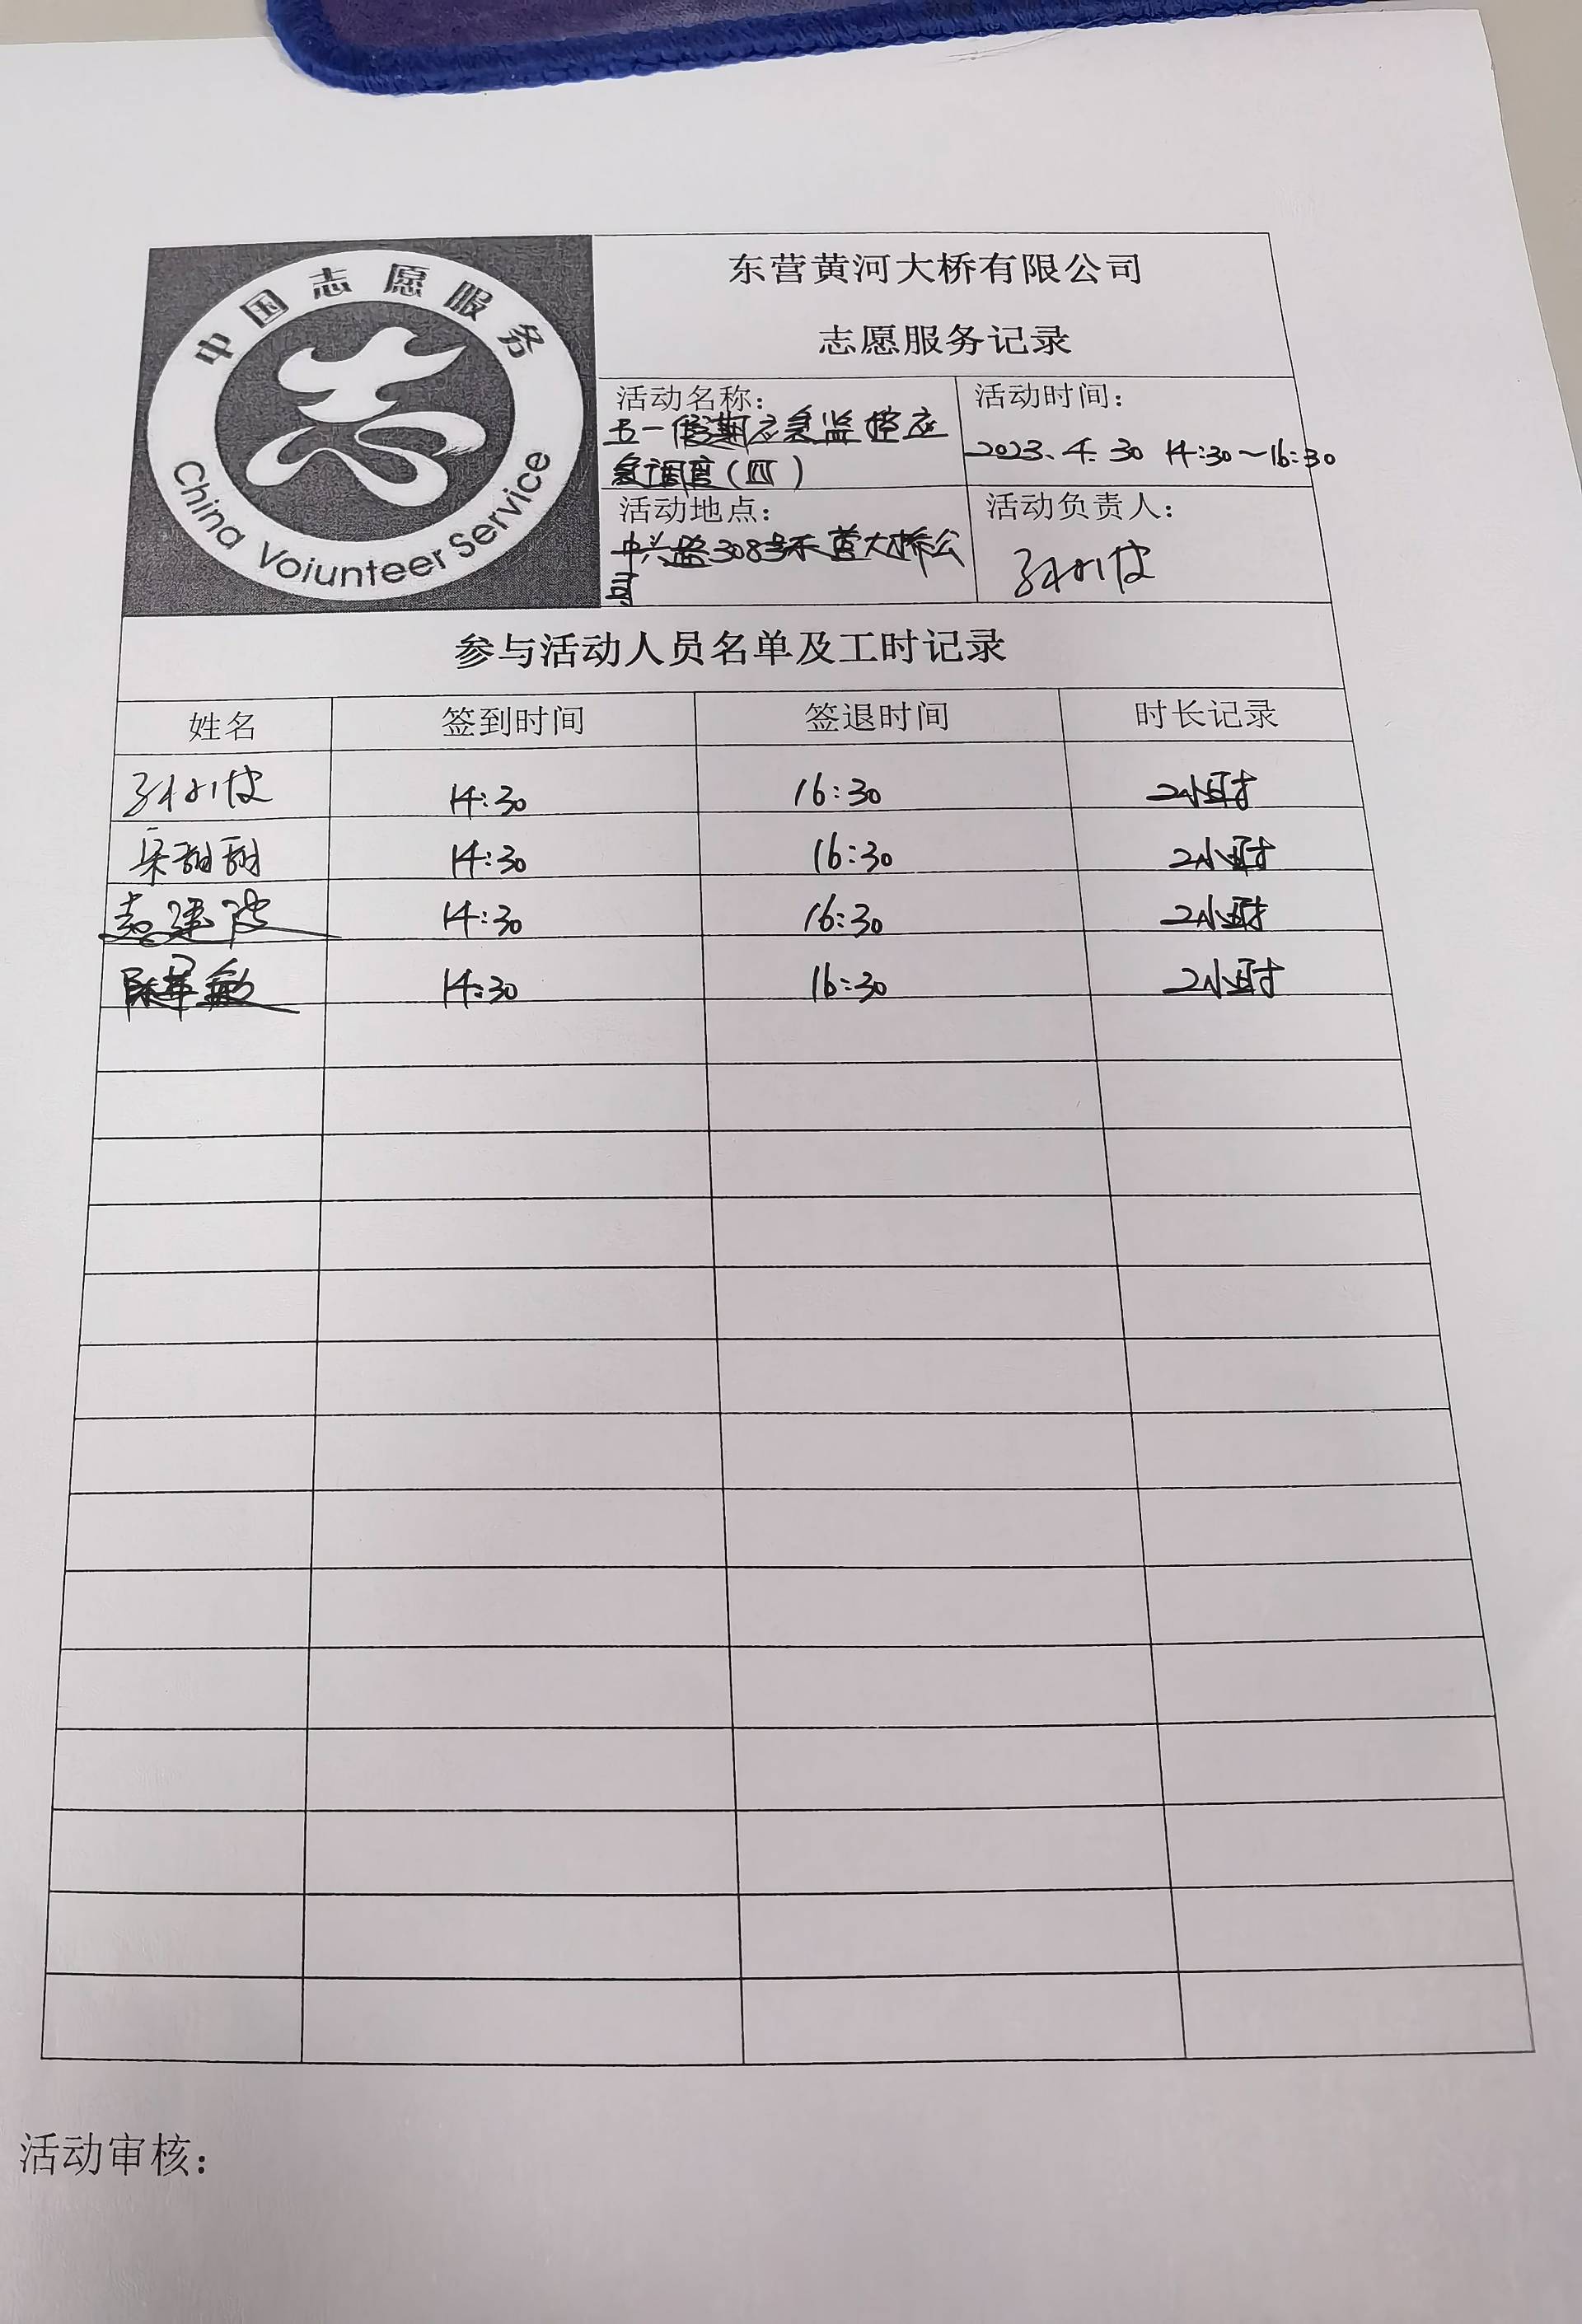 中国志愿服务
China Voiunteer Service
东营黄河大桥有限公司
志愿服务记录
活动名称：
五一假期应急监控应
急调度(四)
活动时间：
2023.4.30 14:30~16:30
活动地点：
中兴路308号东营大桥公
司
活动负责人：
参与活动人员名单及工时记录
姓名 签到时间 签退时间 时长记录
14:30 16:30 2小时
甜甜 14:30 16:30 2小时
14:30 16:30 2小时
陈 敏 14:30 16:30 2小时
活动审核：